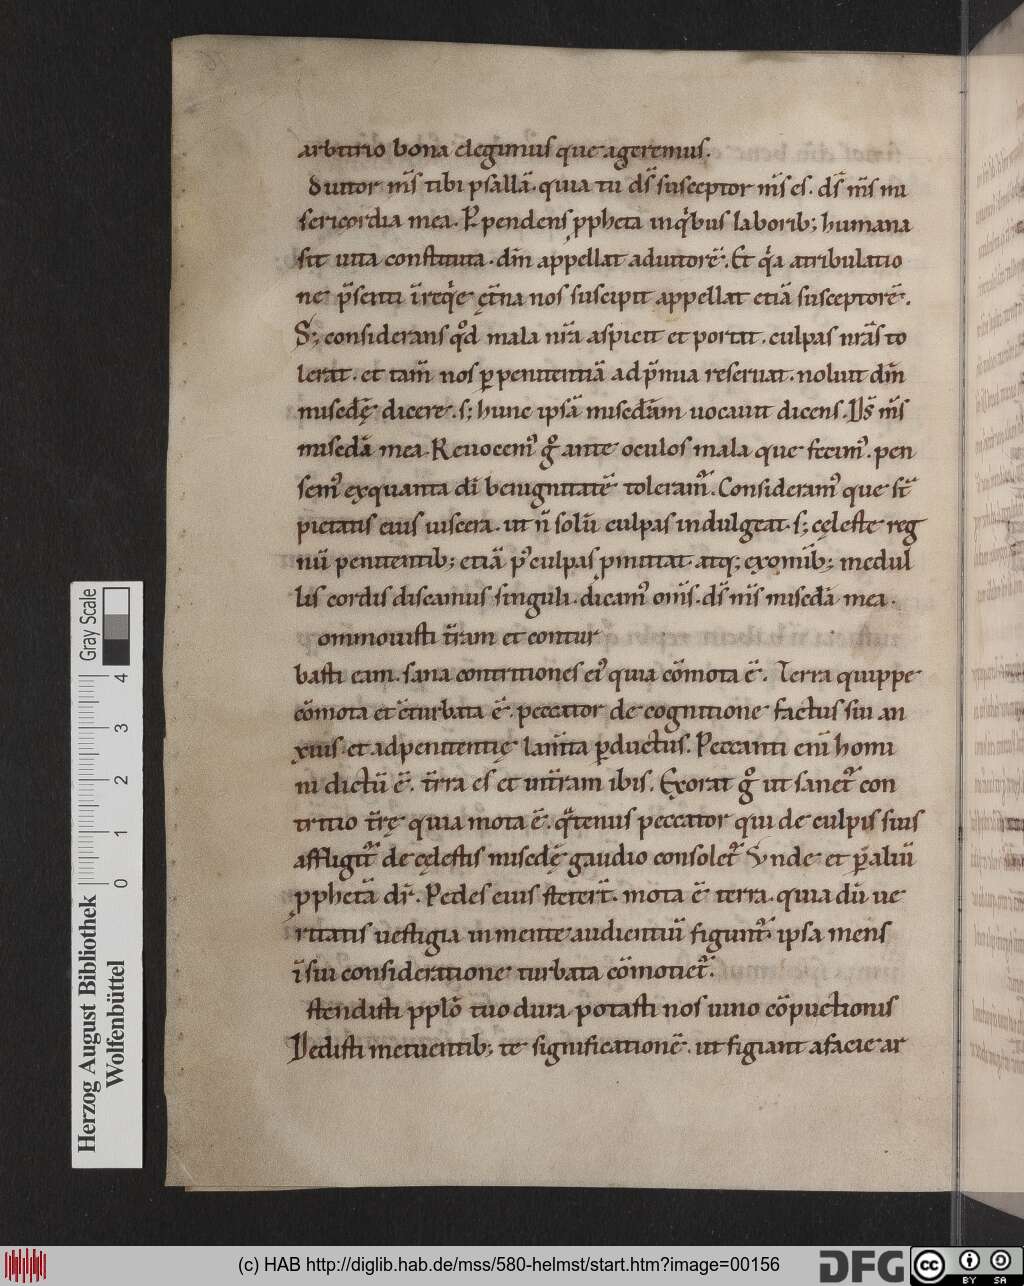 arbitrio bona elegimus que ageremus.
diutor m̅s tibi psallā. quia tu d̅s susceptor m̅s es. d̅s m̅s mi
sericordia mea. Ꝑpendens ꝓpheta inqͥbus laborib; humana
sit uita constituta. dm̅ appellat adiutorē. Et qͥa atribulatio
ne p̅senti ī req̇e ęt̅na nos suscipit appellat etiā susceptorē.
S; considerans qͦd mala nr̅a aspicit et portat. culpas nr̅as to
lerat. et tam̅ nos ꝑ penitentiā ad p̅mia reseruat. noluit dm̅
misedę̅ dicere. s; hunc ipsā misedā̅m uocauit dicens. D̅s m̅s
miseda̅ mea. Reuocem᷒ gͦ ante oculos mala que fecim᷒. pen
sem᷒ exquanta di̅ benignitatē toleram᷒. Consideram᷒ que st̅
pietatis eius uiscera. ut n̅ solū culpas indulgeat. s; cęleste reg
nū penitentib; etiā p᷒ culpas ꝓmittat. atq; exom̅ib; medul
lis cordis dicamus singuli. dicam᷒ om̅s. d̅s m̅s miseda̅ mea.
ommouisti t̅ram et contur
basti eam. sana contritiones ei᷒ quia cōmota ē. Terra quippe
cōmota et c̅turbata ē. peccator de cognitione factus sui an
xius. et ad penitentię lam̅ta ꝑductus. Peccanti enī homi
ni dictū ē. t̅rra es et int̅ram ibis. Exorat gͦ ut sanet᷒ con
tritio t̅rę quia mota ē. qͣtenus peccator qui de culpis suis
affligit᷒ de cęlestis misedę̅ gaudio consolet᷒ Unde et ꝑ aliū
ꝓphetā dr̅. Pedes eius steter̅t. mota ē terra. quia dū ue
ritatis uestigia in mente audientiū figunt᷒ ipsa mens
ī sui consideratione turbata cōmouet᷒.
stendisti pplo̅ tuo dura. potasti nos uino cōpunctionis
Dedisti metuentib; te significationē. ut fugiant afacie ar
Gray Scale
4
3
2
1
0
Herzog August Bibliothek
Wolfenbüttel
(c) HAB http://diglib.hab.de/mss/580-helmst/start.htm?image=00156
DFG
cc
BY SA